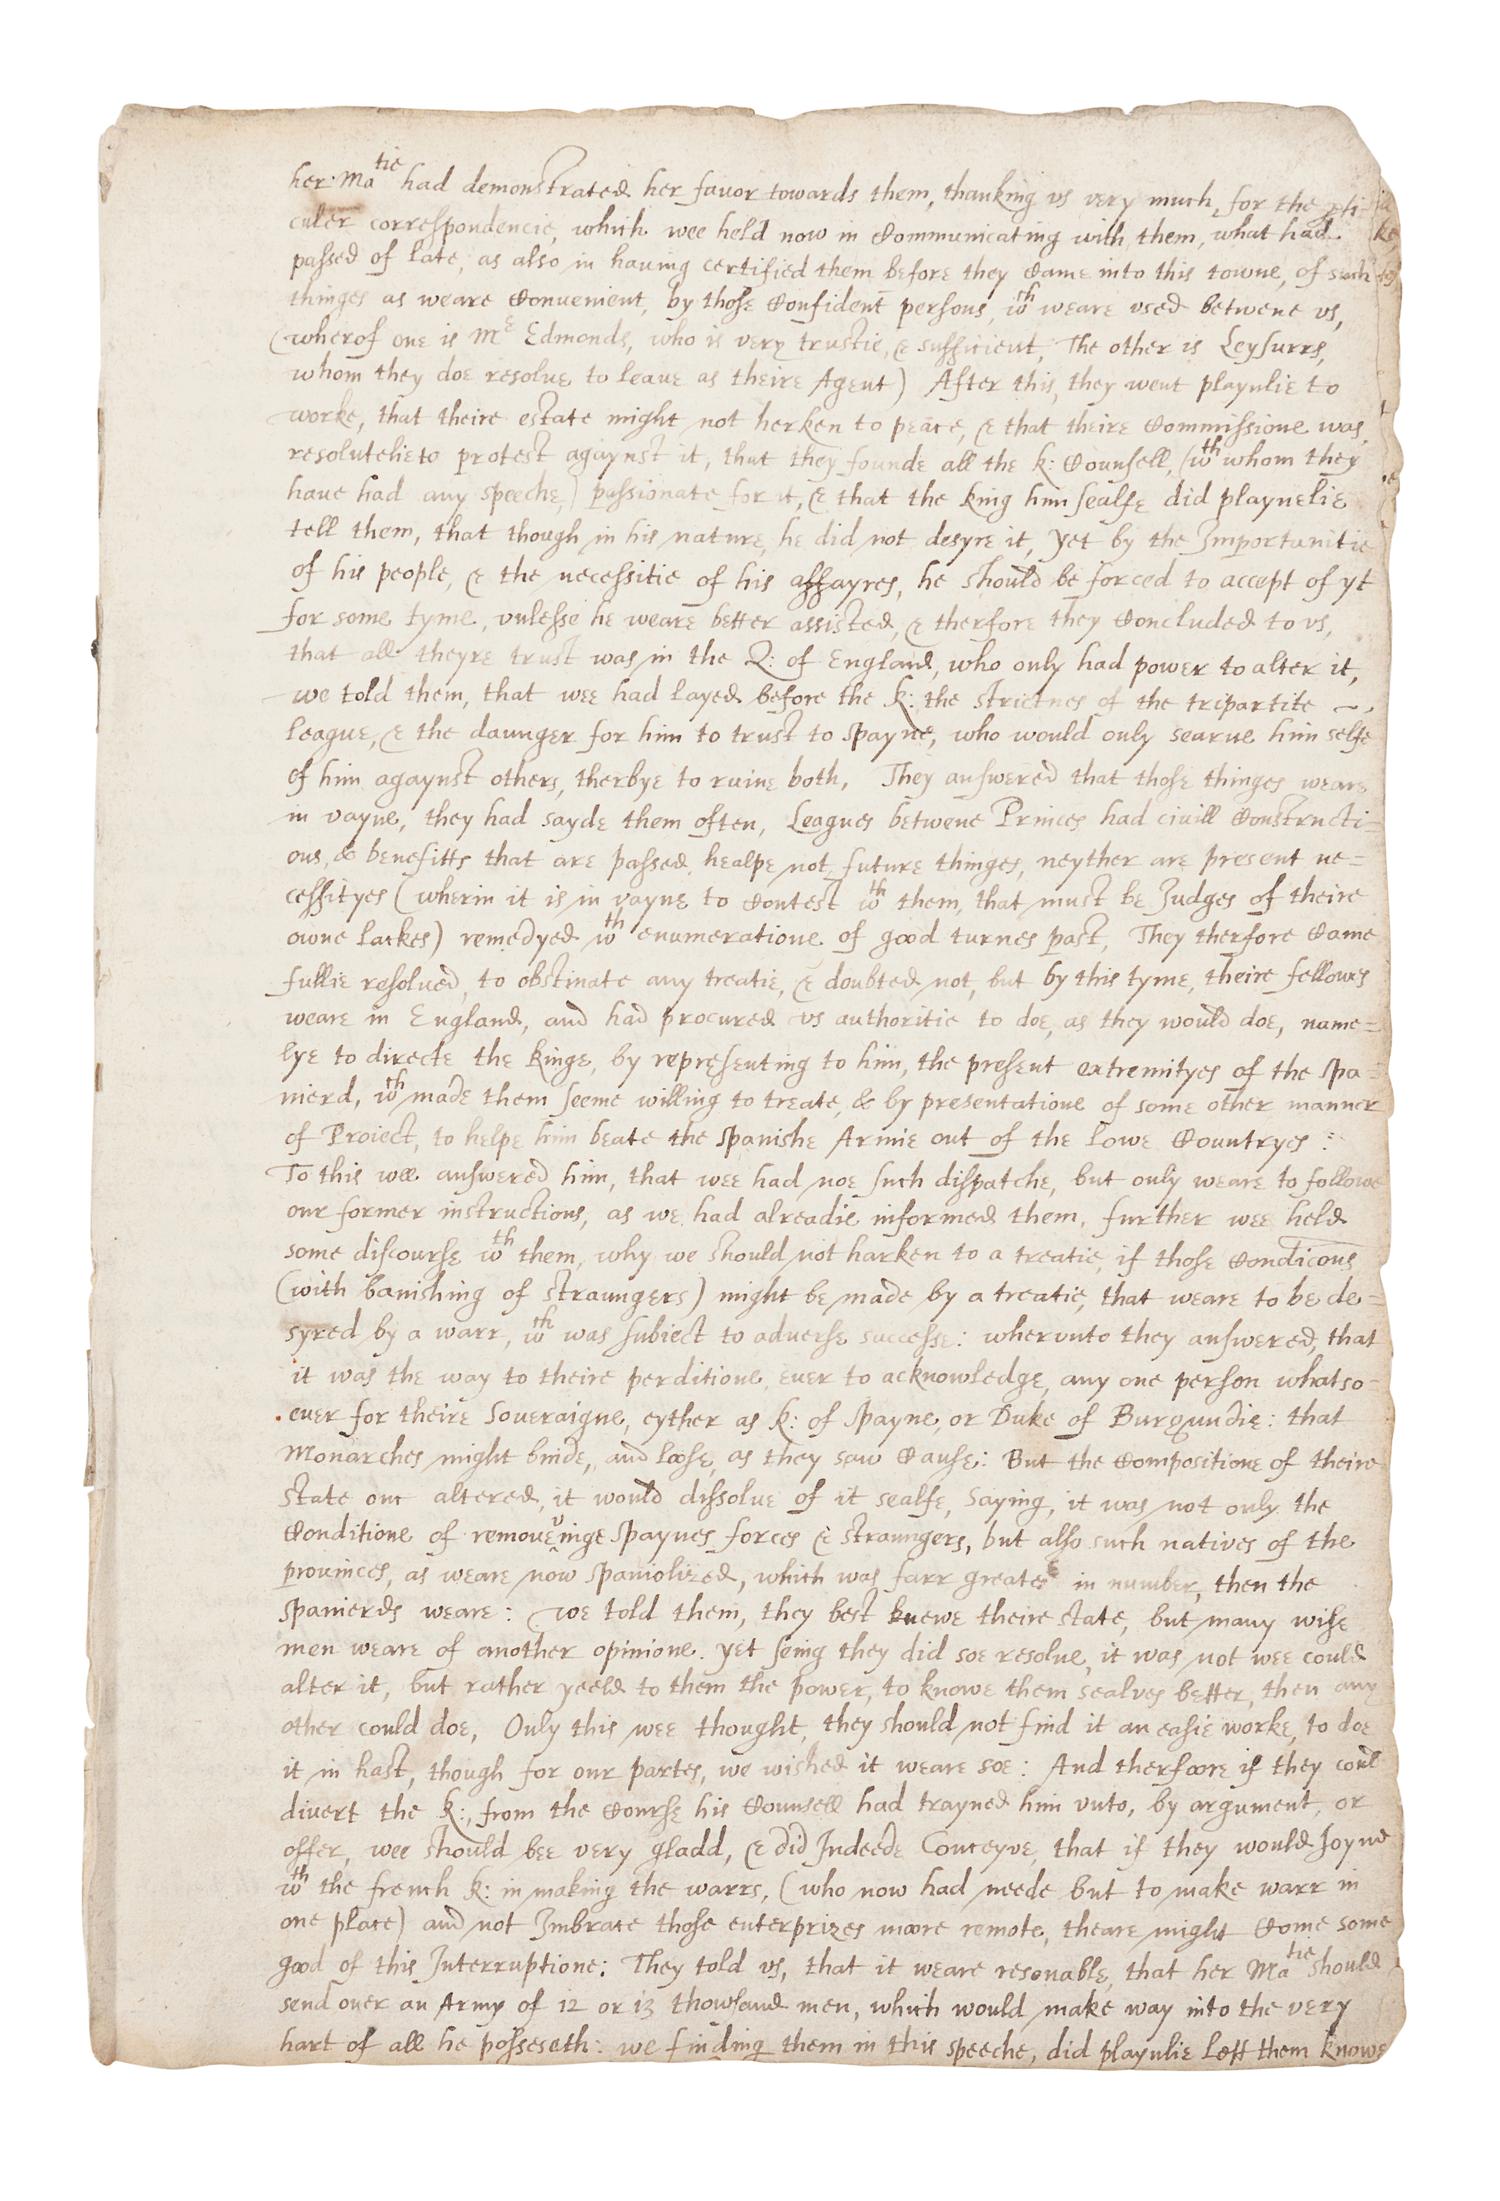 her Ma^tie had demonstrated her favor towards them, thanking vs very much, for the pti=
culer correspondencie, which wee held now in Communicating with them, what had
passed of late, as also in having certified them before they Came into this towne, of such
thinges as weare Convenient, by those Confident persons, w^th weare vsed betwene vs,
(wherof one is M^r Edmonds, who is very trustie, & sufficient, The other is Leysurrs,
whom they doe resolue to leaue as theire Agent) After this, they went playnlie to
worke, that theire estate might not herken to peace, & that theire Commissione was
resolutelie to protest agaynst it, that they founde all the k: Counsell, (w^th whom they
haue had any speeche,) passionate for it, & that the king him sealfe did playnelie
tell them, that though in his nature, he did not desyre it, yet by the Importunitie
of his people, & the necessitie of his affayres, he should be forced to accept of yt
for some tyme, vnlesse he weare better assisted, & therfore they Concluded to vs,
that all theyre trust was in the Q: of England, who only had power to alter it,
we told them, that wee had layed before the k: the strictnes of the tripartite
league, & the daunger for him to trust to Spayne, who would only searue him selfe
of him agaynst others, therbye to ruine both. They answered that those thinges weare
in vayne, they had sayde them often, Leagues betwene Princes had civill Constructi=
ons, & benefitts that are passed, healpe not future thinges, neyther are present ne=
cessityes (wherin it is in vayne to Contest w^th them, that must be Judges of theire
owne lackes) remedyed w^th enumeratione of good turnes past, They therfore Came
fullie resolued, to obstinate any treatie, & doubted not, but by this tyme, theire fellowes
weare in England, and had procured vs authoritie to doe, as they would doe, name=
lye to directe the kinge, by representing to him, the present extremityes of the Spa=
nierd, w^th made them seeme willing to treate, & by presentatione of some other manner
of Proiect, to helpe him beate the Spanishe Armie out of the Lowe Countryes:
To this wee answered him, that wee had noe such dispatche, but only weare to followe
our former instructions, as we had alreadie informed them, further wee held
some discourse w^th them, why we should not harken to a treatie, if those Condicons
(with banishing of straungers) might be made by a treatie, that weare to be de=
syred by a warr, w^th was subiect to aduerse successe: wherunto they answered, that
it was the way to theire perditione, euer to acknowledge, any one person whatso=
euer for theire Soueraigne, eyther as k: of Spayne, or Duke of Burgundie: that
Monarches might binde, and loose, as they saw Cause: But the Compositione of theire
state onc altered, it would dissolue of it sealfe, Saying, it was not only the
Conditione of remoueinge Spaynes forces & straungers, but also such natives of the
provinces, as weare now Spaniolized, which was farr greater in number, then the
Spanierds weare: we told them, they best knewe theire state, but many wise
men weare of another opinione. yet seing they did soe resolue, it was not wee could
alter it, but rather yeeld to them the power, to knowe them sealves better, then any
other could doe, Only this wee thought, they should not find it an easie worke, to doe
it in hast, though for our partes, we wished it weare soe: And therfoore if they could
divert the k:, from the Course his Counsell had trayned him vnto, by argument, or
offer, wee should bee very gladd, & did Indeede Conceyve, that if they would Joyne
w^th the french k: in making the warrs, (who now had neede but to make warr in
one place) and not Imbrace those enterprizes moore remote, theare might Come some
good of this Interruptione: They told vs, that it weare resonable, that her Ma^tie should
send over an Army of 12 or 13 thowsand men, which would make way into the very
hart of all he posseseth: we finding them in this speeche, did playnlie lett them knowe